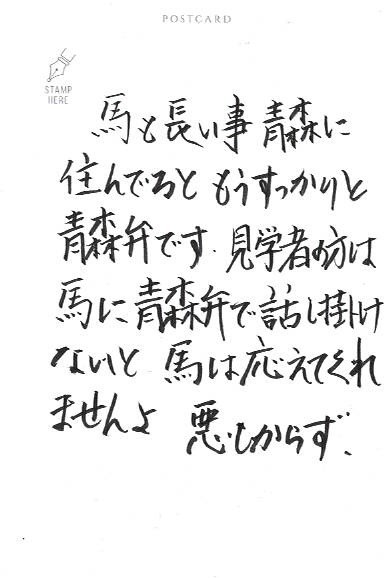 POSTCARD
STAMP
HERE
馬も長い事青森に
住んでると もうすっかりと
青森弁です. 見学者の方は
馬に青森弁で話し掛け
ないと 馬は応えてくれ
ませんよ 悪しからず.